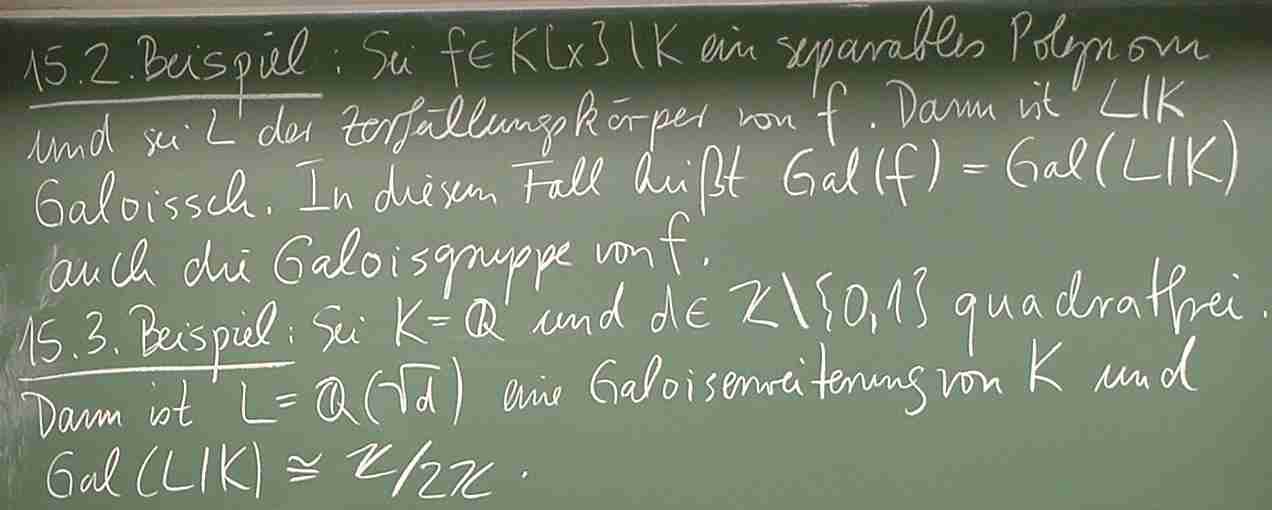 15.2. Beispiel: Sei f ∈ K[x] \ K ein separables Polynom
und sei L der Zerfällungskörper von f. Dann ist L|K
Galoissch. In diesem Fall heißt Gal(f) = Gal(L|K)
auch die Galoisgruppe von f.
15.3. Beispiel: Sei K = ℚ und d ∈ ℤ\{0,1} quadratfrei.
Dann ist L = ℚ(√d) eine Galoiserweiterung von K und
Gal(L|K) ≅ ℤ/2ℤ.